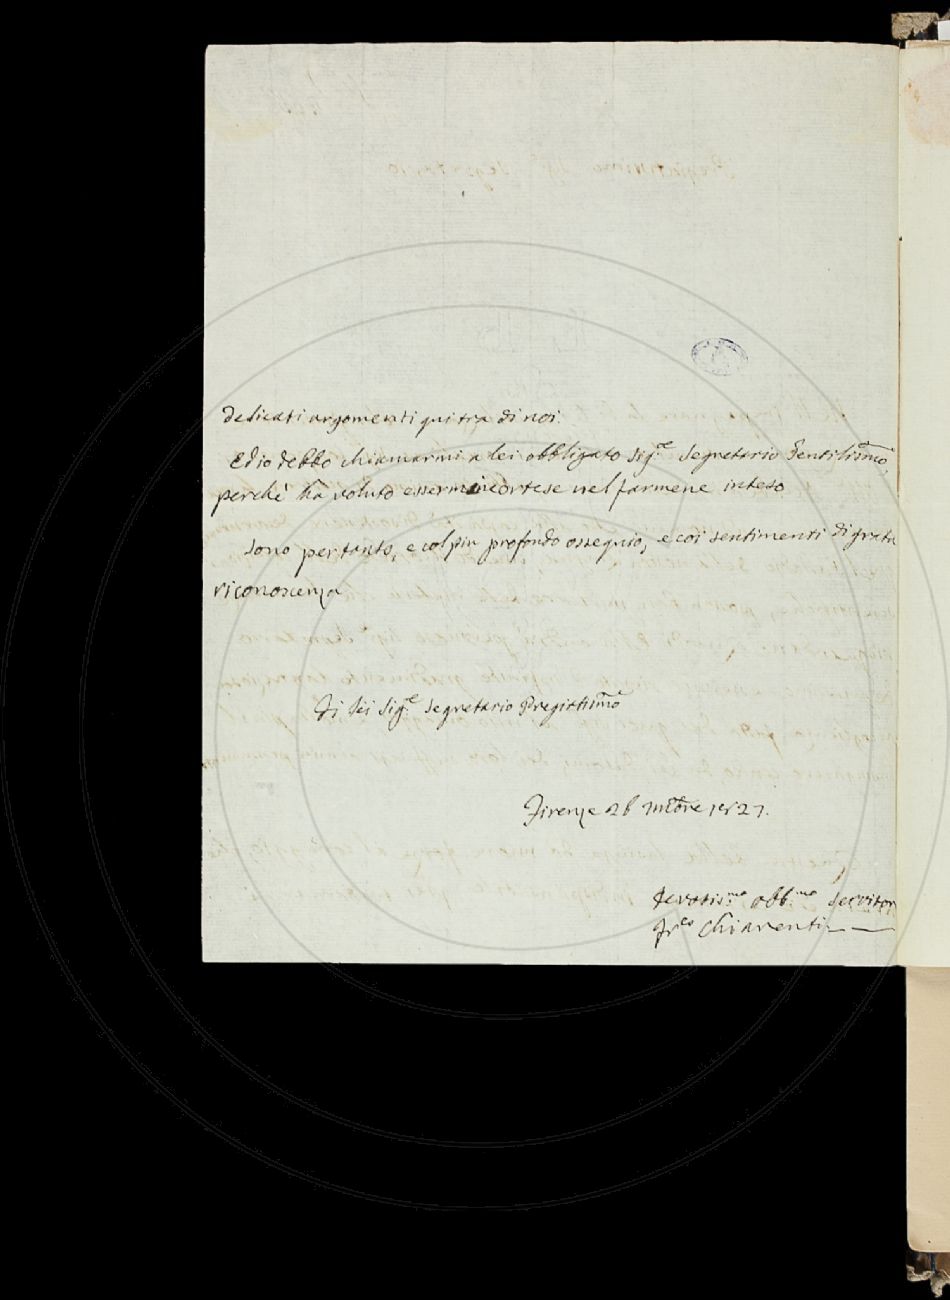 delicati argomenti qui tra di noi.
Ed io debbo chiamarmi a lei obbligato Sig.e Segretario Gentilissmo,
perchè ha voluto essermine cortese nel farmene inteso
Sono pertanto, e col più profondo ossequio, e coi sentimenti di grata
riconoscenza
Di Lei Sig.e Segretario Pregiatissmo
Firenze 26 1827.
Devotis.mo obb.mo Servitor
Fr.co Chiarenti